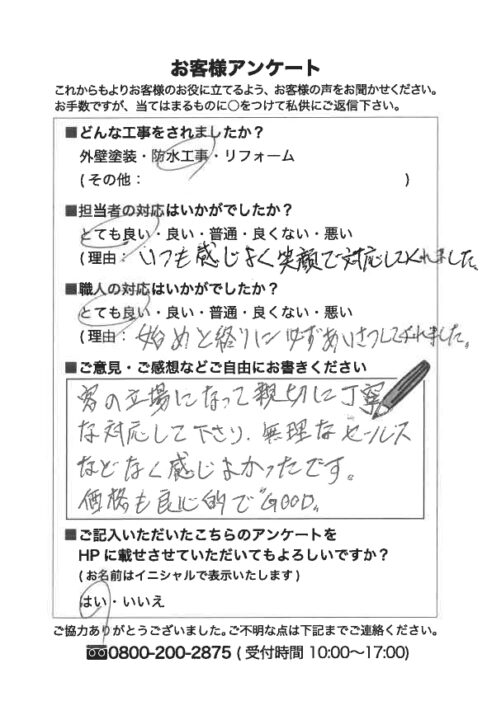 お客様アンケート
これからもよりお客様のお役に立てるよう、お客様の声をお聞かせください。
お手数ですが、当てはまるものに○をつけて私供にご返信下さい。
■どんな工事をされましたか？
外壁塗装・防水工事・リフォーム
(その他：　)
■担当者の対応はいかがでしたか？
とても良い・良い・普通・良くない・悪い
(理由：いつも感じよく笑顔で対応してくれました。
■職人の対応はいかがでしたか？
とても良い・良い・普通・良くない・悪い
(理由：始めと終りに必ずあいさつしてくれました。
■ご意見・ご感想などご自由にお書きください
客の立場になって親切に丁寧
な対応して下さり、無理なセールス
などなく感じよかったです。
価格も良心的で"GOOD"。
■ご記入いただいたこちらのアンケートを
HPに載せさせていただいてもよろしいですか？
(お名前はイニシャルで表示いたします)
はい・いいえ
ご協力ありがとうございました。ご不明な点は下記までご連絡ください。
0800-200-2875 (受付時間 10:00〜17:00)